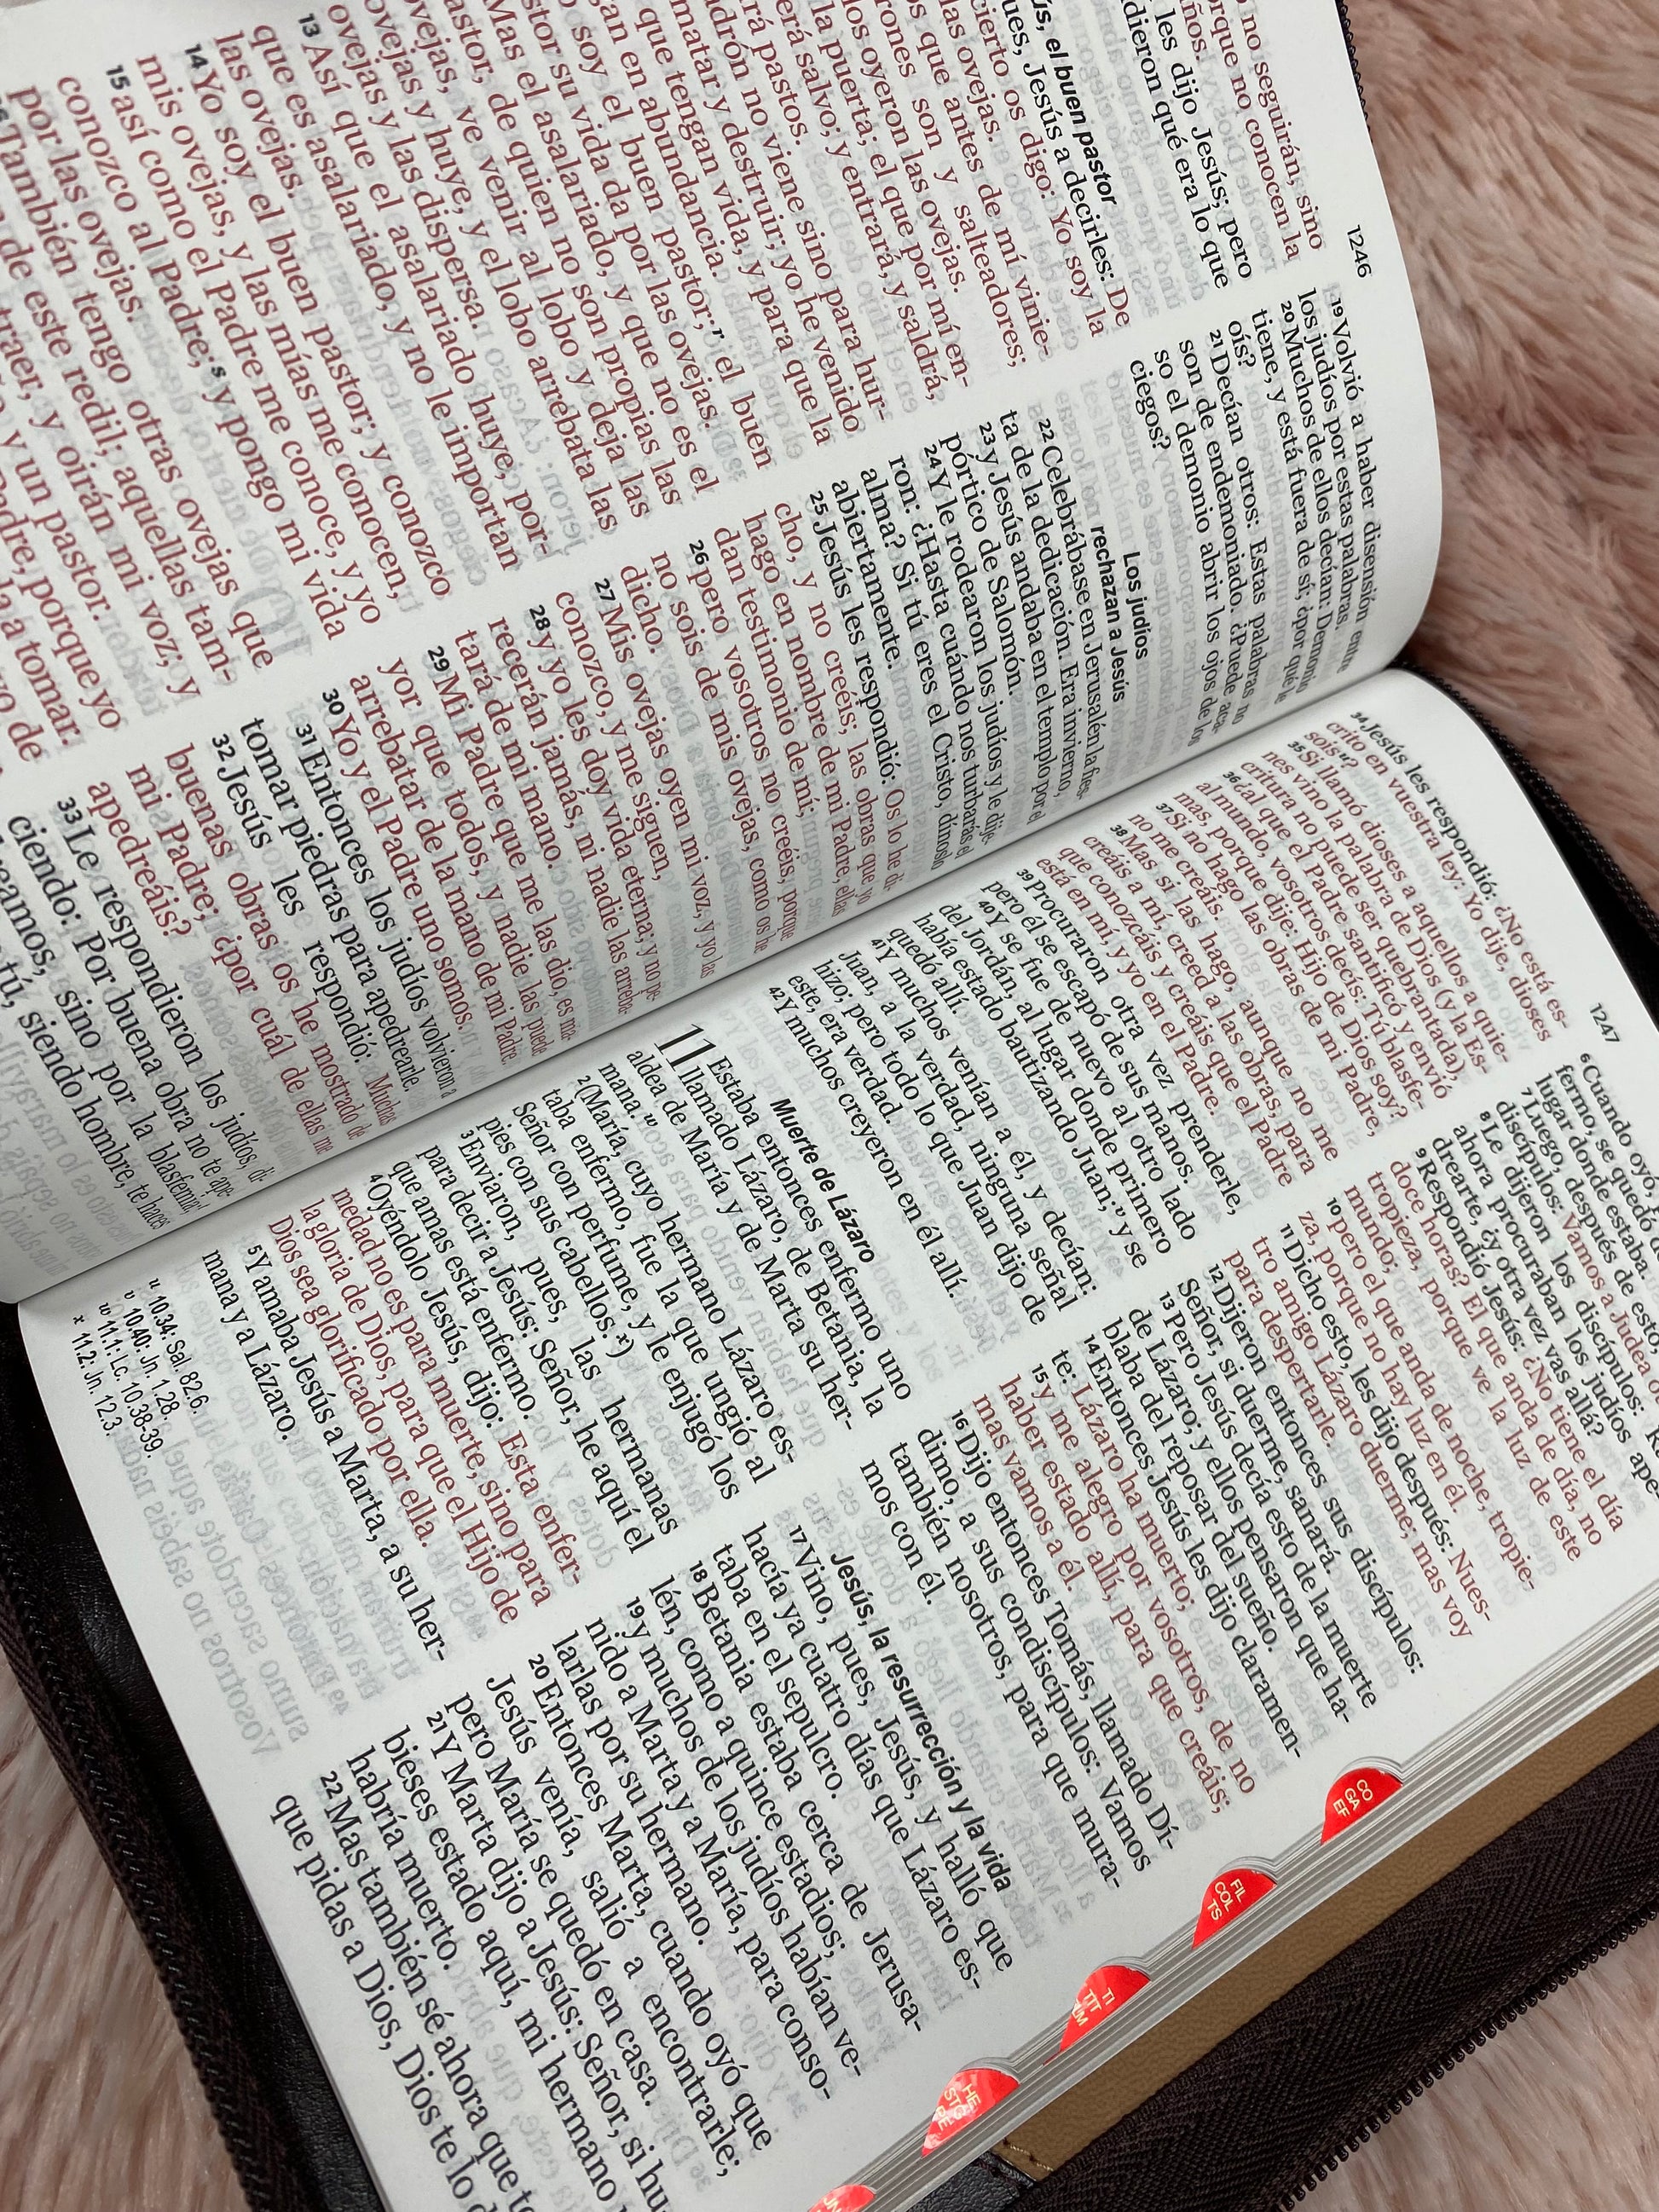 1246
no seguirán, sino
rque no conocen la
ños.
les dijo Jesús; pero
dieron qué era lo que
ús, el buen pastor
ues, Jesús a decirles: De
cierto os digo: Yo soy la
las ovejas.
s que antes de mí vinie-
rones son y salteadores;
los oyeron las ovejas.
la puerta; el que por mí en-
erá salvo; y entrará, y saldrá,
rá pastos.
adrón no viene sino para hur-
matar y destruir; yo he venido
que tengan vida, y para que la
gan en abundancia.
o soy el buen pastor; r el buen
stor su vida da por las ovejas.
Mas el asalariado, y que no es el
astor, de quien no son propias las
ovejas, ve venir al lobo y deja las
ovejas y huye, y el lobo arrebata las
ovejas y las dispersa.
13 Así que el asalariado huye, por-
que es asalariado, y no le importan
las ovejas.
14 Yo soy el buen pastor; y conozco
mis ovejas, y las mías me conocen,
15 así como el Padre me conoce, y yo
conozco al Padre; s y pongo mi vida
por las ovejas.
También tengo otras ovejas que
de este redil; aquellas tam-
traer, y oirán mi voz; y
y un pastor.
Padre, porque yo
la a tomar.
yo de
19 Volvió a haber disensión entre
los judíos por estas palabras.
20 Muchos de ellos decían: Demonio
tiene, y está fuera de sí; ¿por qué le
oís?
21 Decían otros: Estas palabras no
son de endemoniado. ¿Puede aca-
so el demonio abrir los ojos de los
ciegos?
Los judíos
rechazan a Jesús
22 Celebrábase en Jerusalén la fies-
ta de la dedicación. Era invierno,
23 y Jesús andaba en el templo por el
pórtico de Salomón.
24 Y le rodearon los judíos y le dije-
ron: ¿Hasta cuándo nos turbarás el
alma? Si tú eres el Cristo, dínoslo
abiertamente.
25 Jesús les respondió: Os lo he di-
cho, y no creéis; las obras que yo
hago en nombre de mi Padre, ellas
dan testimonio de mí;
26 pero vosotros no creéis, porque
no sois de mis ovejas, como os he
dicho.
27 Mis ovejas oyen mi voz, y yo las
conozco, y me siguen,
28 y yo les doy vida eterna; y no pe-
recerán jamás, ni nadie las arreba-
tará de mi mano.
29 Mi Padre que me las dio, es ma-
yor que todos, y nadie las puede
arrebatar de la mano de mi Padre.
30 Yo y el Padre uno somos.
31 Entonces los judíos volvieron a
tomar piedras para apedrearle.
32 Jesús les respondió: Muchas
buenas obras os he mostrado de
mi Padre; ¿por cuál de ellas me
apedreáis?
33 Le respondieron los judíos, di-
ciendo: Por buena obra no te ape-
dreamos, sino por la blasfemia;
tú, siendo hombre, te haces
1247
34 Jesús les respondió: ¿No está es-
crito en vuestra ley: Yo dije, dioses
sois u?
35 Si llamó dioses a aquellos a quie-
nes vino la palabra de Dios (y la Es-
critura no puede ser quebrantada),
36 ¿al que el Padre santificó y envió
al mundo, vosotros decís: Tú blasfe-
mas, porque dije: Hijo de Dios soy?
37 Si no hago las obras de mi Padre,
no me creáis.
38 Mas si las hago, aunque no me
creáis a mí, creed a las obras, para
que conozcáis y creáis que el Padre
está en mí, y yo en el Padre.
39 Procuraron otra vez prenderle,
pero él se escapó de sus manos.
40 Y se fue de nuevo al otro lado
del Jordán, al lugar donde primero
había estado bautizando Juan; v y se
quedó allí.
41 Y muchos venían a él, y decían:
Juan, a la verdad, ninguna señal
hizo; pero todo lo que Juan dijo de
este, era verdad.
42 Y muchos creyeron en él allí.
Muerte de Lázaro
11 Estaba entonces enfermo uno
llamado Lázaro, de Betania, la
aldea de María y de Marta su her-
mana. w
2 (María, cuyo hermano Lázaro es-
taba enfermo, fue la que ungió al
Señor con perfume, y le enjugó los
pies con sus cabellos. x)
3 Enviaron, pues, las hermanas
para decir a Jesús: Señor, he aquí el
que amas está enfermo.
4 Oyéndolo Jesús, dijo: Esta enfer-
medad no es para muerte, sino para
la gloria de Dios, para que el Hijo de
Dios sea glorificado por ella.
5 Y amaba Jesús a Marta, a su her-
mana y a Lázaro.
u 10.34: Sal. 82.6.
v 10.40: Jn. 1.28.
w 11.1: Lc. 10.38-39.
x 11.2: Jn. 12.3.
6 Cuando oyó,
fermo, se quedó
lugar donde estaba.
7 Luego, después de esto,
discípulos: Vamos a Judea
8 Le dijeron los discípulos:
ahora procuraban los judíos ape-
drearte, ¿y otra vez vas allá?
9 Respondió Jesús: ¿No tiene el día
doce horas? El que anda de día, no
tropieza, porque ve la luz de este
mundo;
10 pero el que anda de noche, tropie-
za, porque no hay luz en él.
11 Dicho esto, les dijo después: Nues-
tro amigo Lázaro duerme; mas voy
para despertarle.
12 Dijeron entonces sus discípulos:
Señor, si duerme, sanará.
13 Pero Jesús decía esto de la muerte
de Lázaro; y ellos pensaron que ha-
blaba del reposar del sueño.
14 Entonces Jesús les dijo claramen-
te: Lázaro ha muerto;
15 y me alegro por vosotros, de no
haber estado allí, para que creáis;
mas vamos a él.
16 Dijo entonces Tomás, llamado Dí-
dimo, a sus condiscípulos: Vamos
también nosotros, para que mura-
mos con él.
Jesús, la resurrección y la vida
17 Vino, pues, Jesús, y halló que
hacía ya cuatro días que Lázaro es-
taba en el sepulcro.
18 Betania estaba cerca de Jerusa-
lén, como a quince estadios;
19 y muchos de los judíos habían ve-
nido a Marta y a María, para conso-
larlas por su hermano.
20 Entonces Marta, cuando oyó que
Jesús venía, salió a encontrarle;
pero María se quedó en casa.
21 Y Marta dijo a Jesús: Señor, si hu-
bieses estado aquí, mi hermano
habría muerto.
22 Mas también sé ahora que
que pidas a Dios, Dios te lo
CO
GA
EF
FIL
COL
TS
TI
TIT
HE
STG